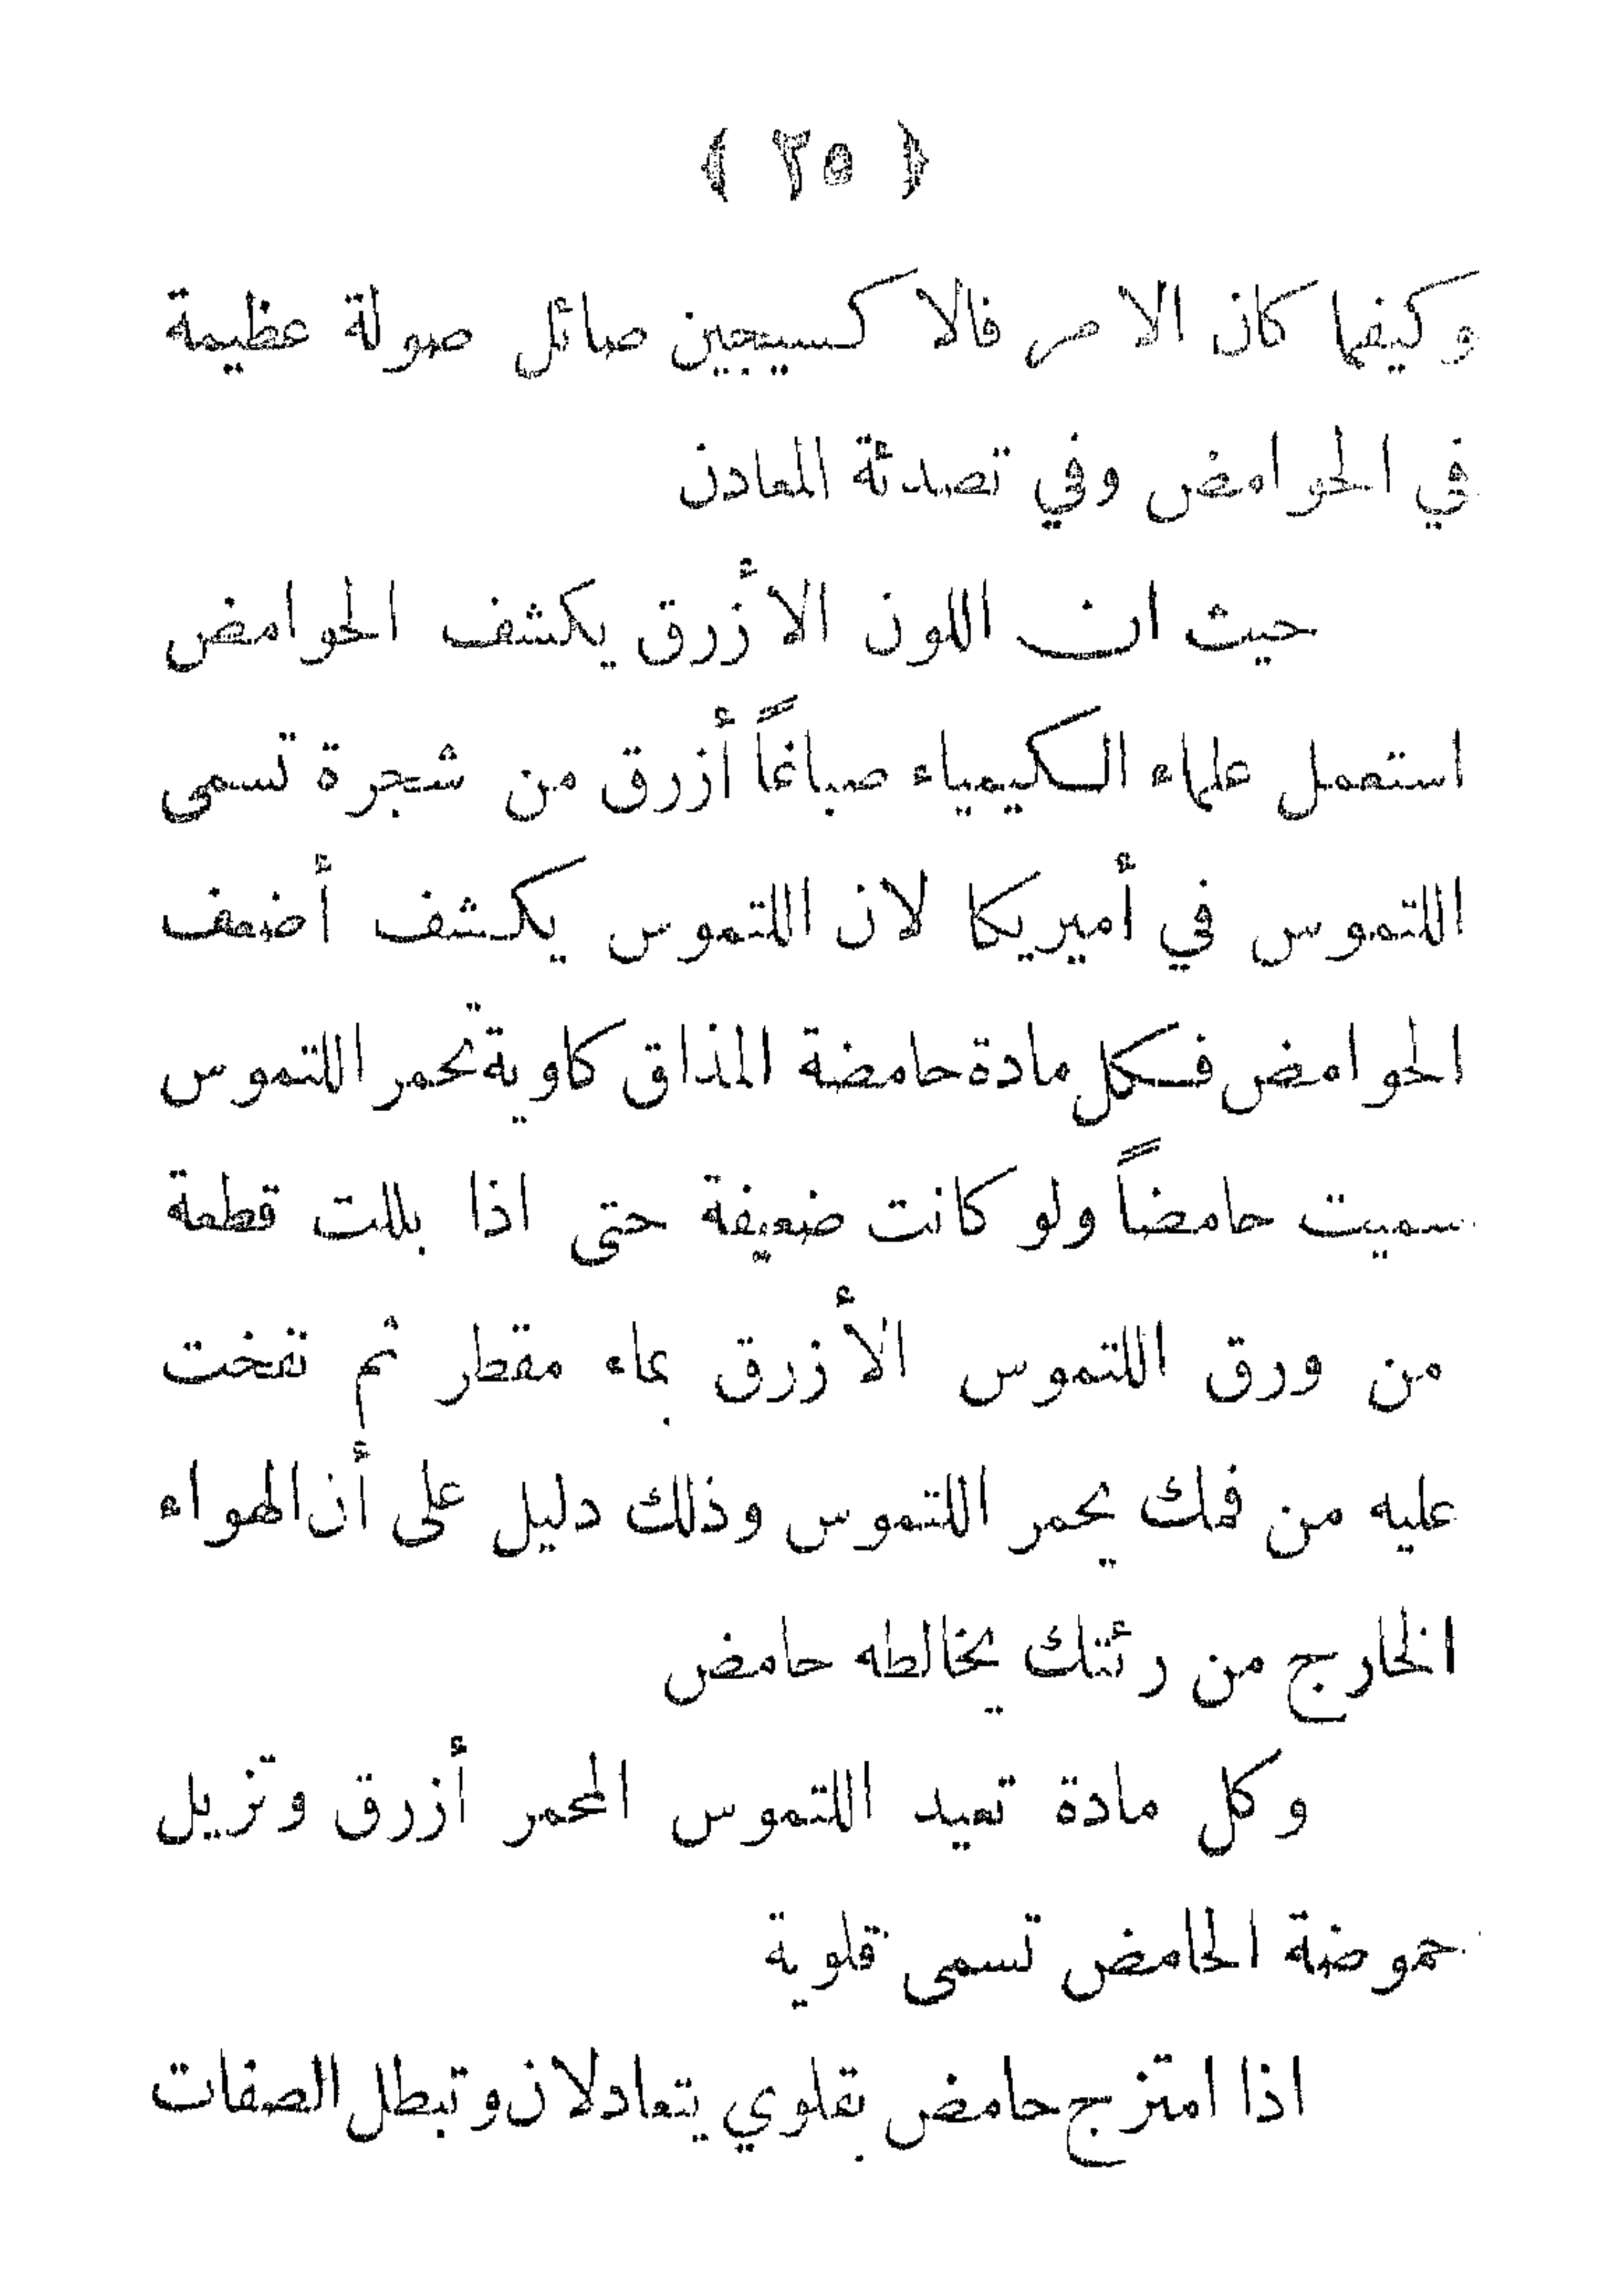 ﴿ ٢٥ ﴾
وكيفما كان الامر فالاكسيجين صائل صولة عظيمة
في الحوامض وفي تصدئة المعادن
حيث ان اللون الأزرق يكشف الحوامض
استعمل علماء الكيمياء صباغاً أزرق من شجرة تسمى
اللتموس في أميريكا لان اللتموس يكشف أضعف
الحوامض فكل مادة حامضة المذاق كاوية تحمر اللتموس
سميت حامضاً ولو كانت ضعيفة حتى اذا بللت قطعة
من ورق اللتموس الأزرق بماء مقطر ثم نفخت
عليه من فمك يحمر اللتموس وذلك دليل على أن الهواء
الخارج من رئتك يخالطه حامض
وكل مادة تعيد اللتموس المحمر أزرق وتزيل
حموضة الحامض تسمى قلوية
اذا امتزج حامض بقلوي يتعادلان وتبطل الصفات